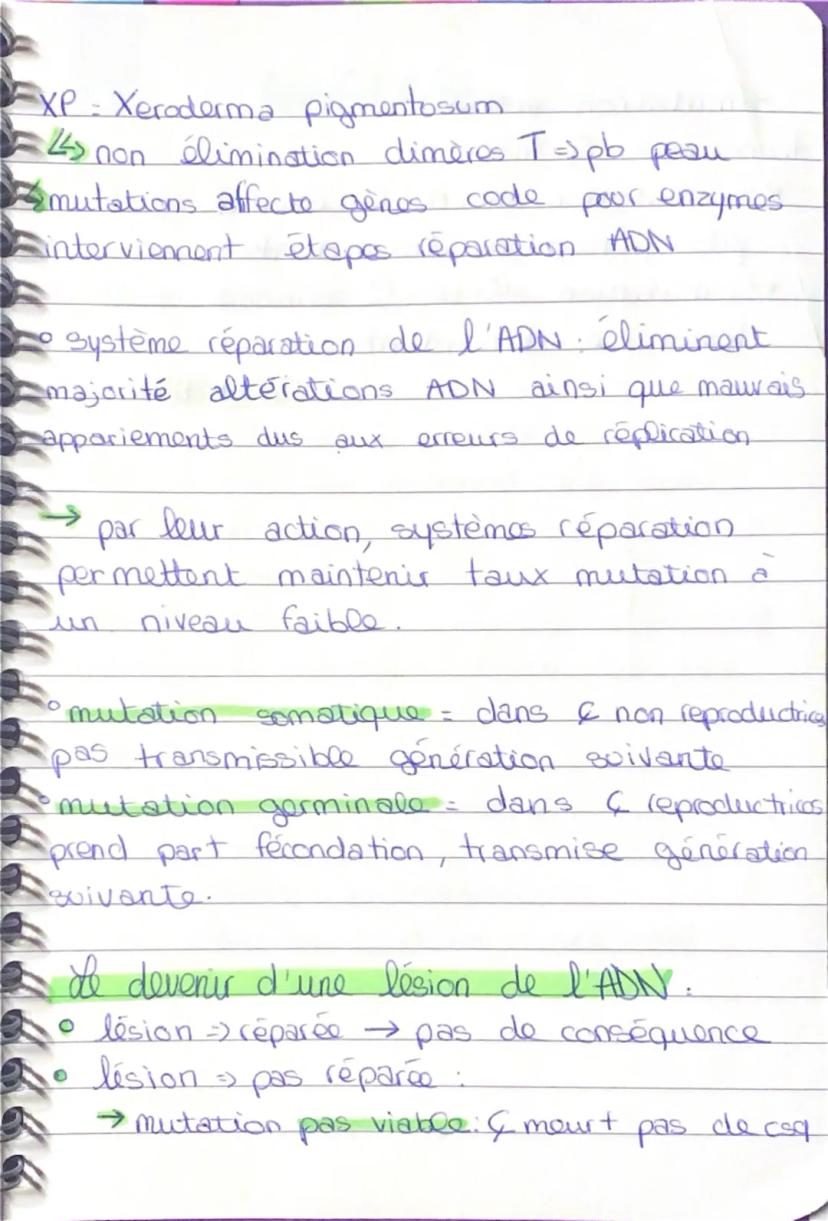 XP = Xeroderma pigmentosum
↳ non élimination dimères T => pb peau
↳ mutations affecte gènes code pour enzymes
interviennent étapes réparation ADN
° système réparation de l'ADN : éliminent
majorité altérations ADN ainsi que mauvais
appariements dus aux erreurs de réplication
→ par leur action, systèmes réparation
permettent maintenir taux mutation à
un niveau faible.
° mutation somatique = dans ₵ non reproductrices
pas transmissible génération suivante
° mutation germinale = dans ₵ reproductrices
prend part fécondation, transmise génération
suivante.
Le devenir d'une lésion de l'ADN :
° lésion => réparée → pas de conséquence
• lésion => pas réparée :
→ mutation pas viable : ₵ meurt pas de csq